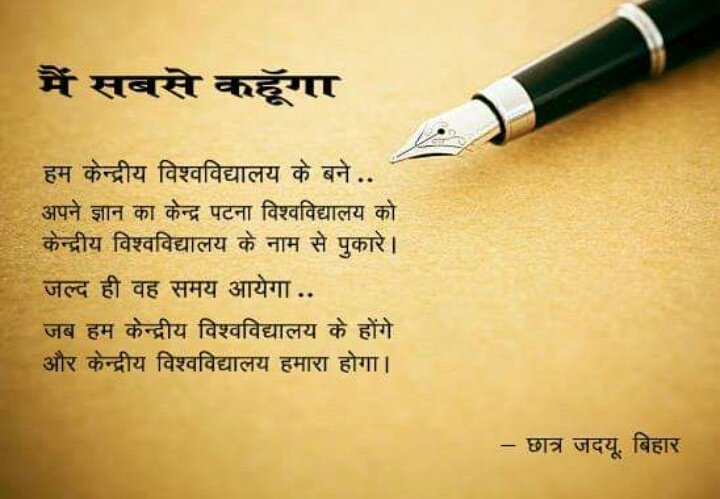 मैं सबसे कहूॅंगा
हम केन्द्रीय विश्वविद्यालय के बने ..
अपने ज्ञान का केन्द्र पटना विश्वविद्यालय को
केन्द्रीय विश्वविद्यालय के नाम से पुकारे।
जल्द ही वह समय आयेगा ..
जब हम केन्द्रीय विश्वविद्यालय के होंगे
और केन्द्रीय विश्वविद्यालय हमारा होगा।
– छात्र जदयू, बिहार